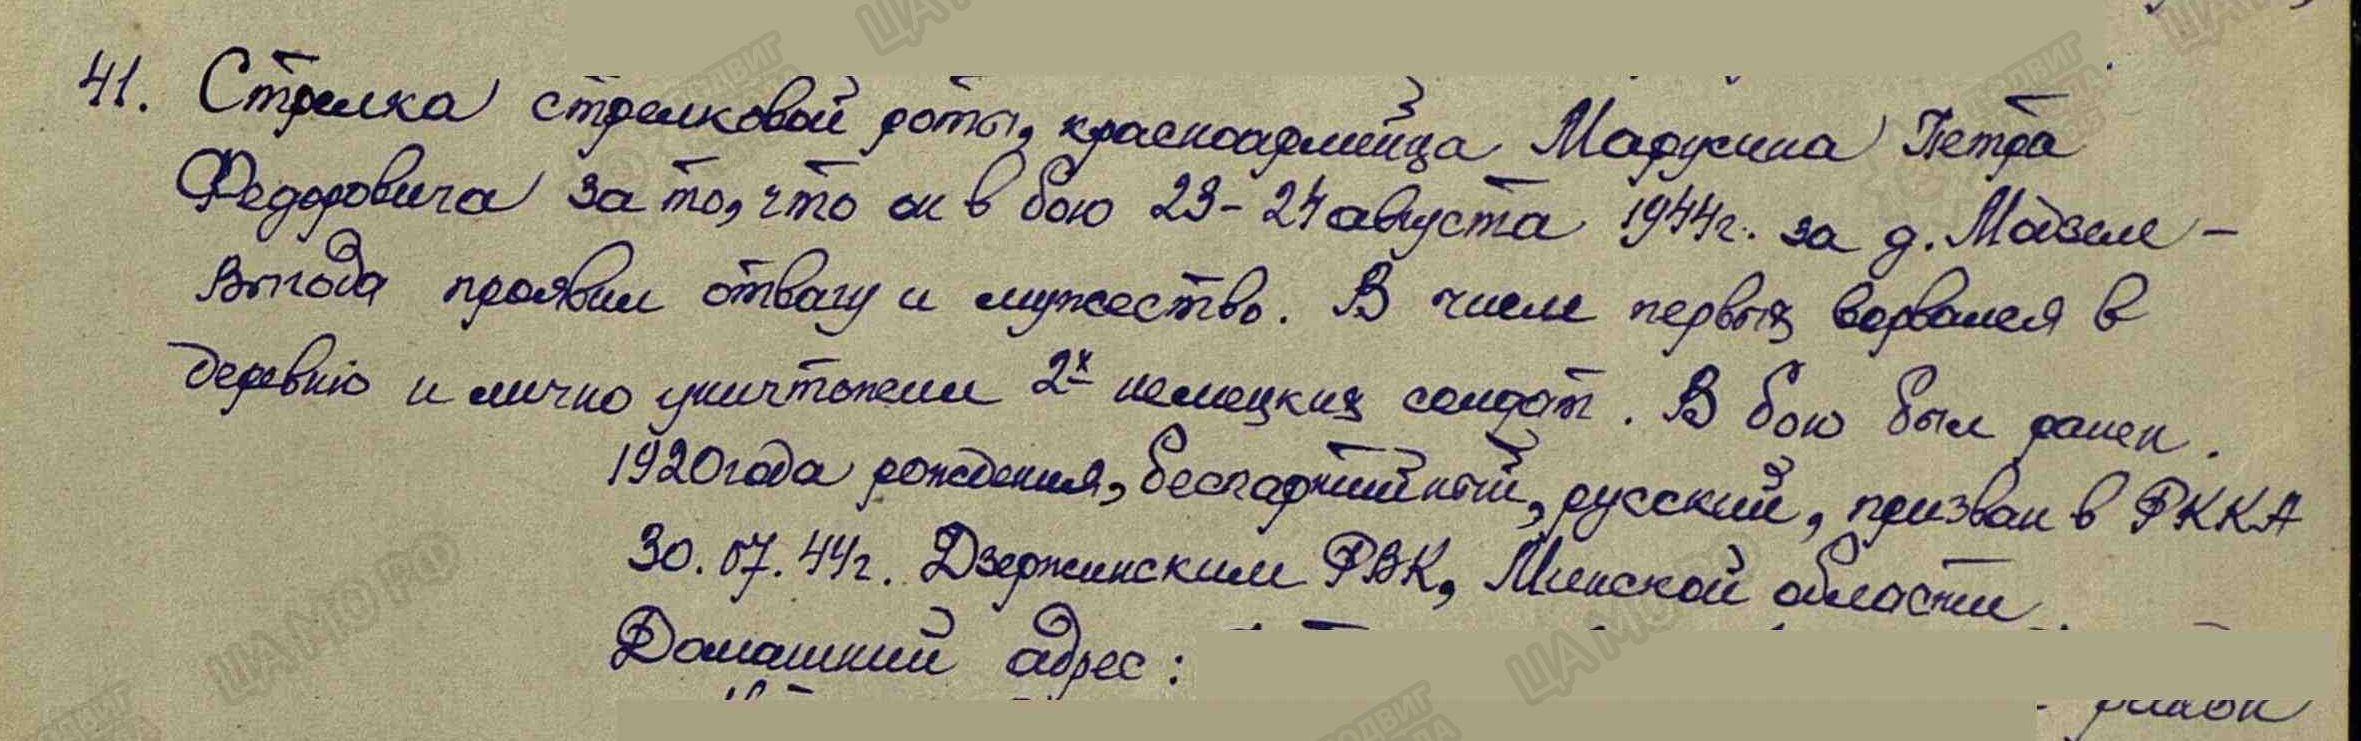 41. Стрелка стрелковой роты, красноармейца Марусина Петра
Федоровича за то, что он в бою 23-24 августа 1944г. за д. Мадзеле-
Выгода проявил отвагу и мужество. В числе первых ворвался в
деревню и лично уничтожил 2х немецких солдат. В бою был ранен.
1920 года рождения, беспартийный, русский, призван в РККА
30.07.44г. Дзержинским РВК, Минской области
Домашний адрес:
ЦАМО РФ